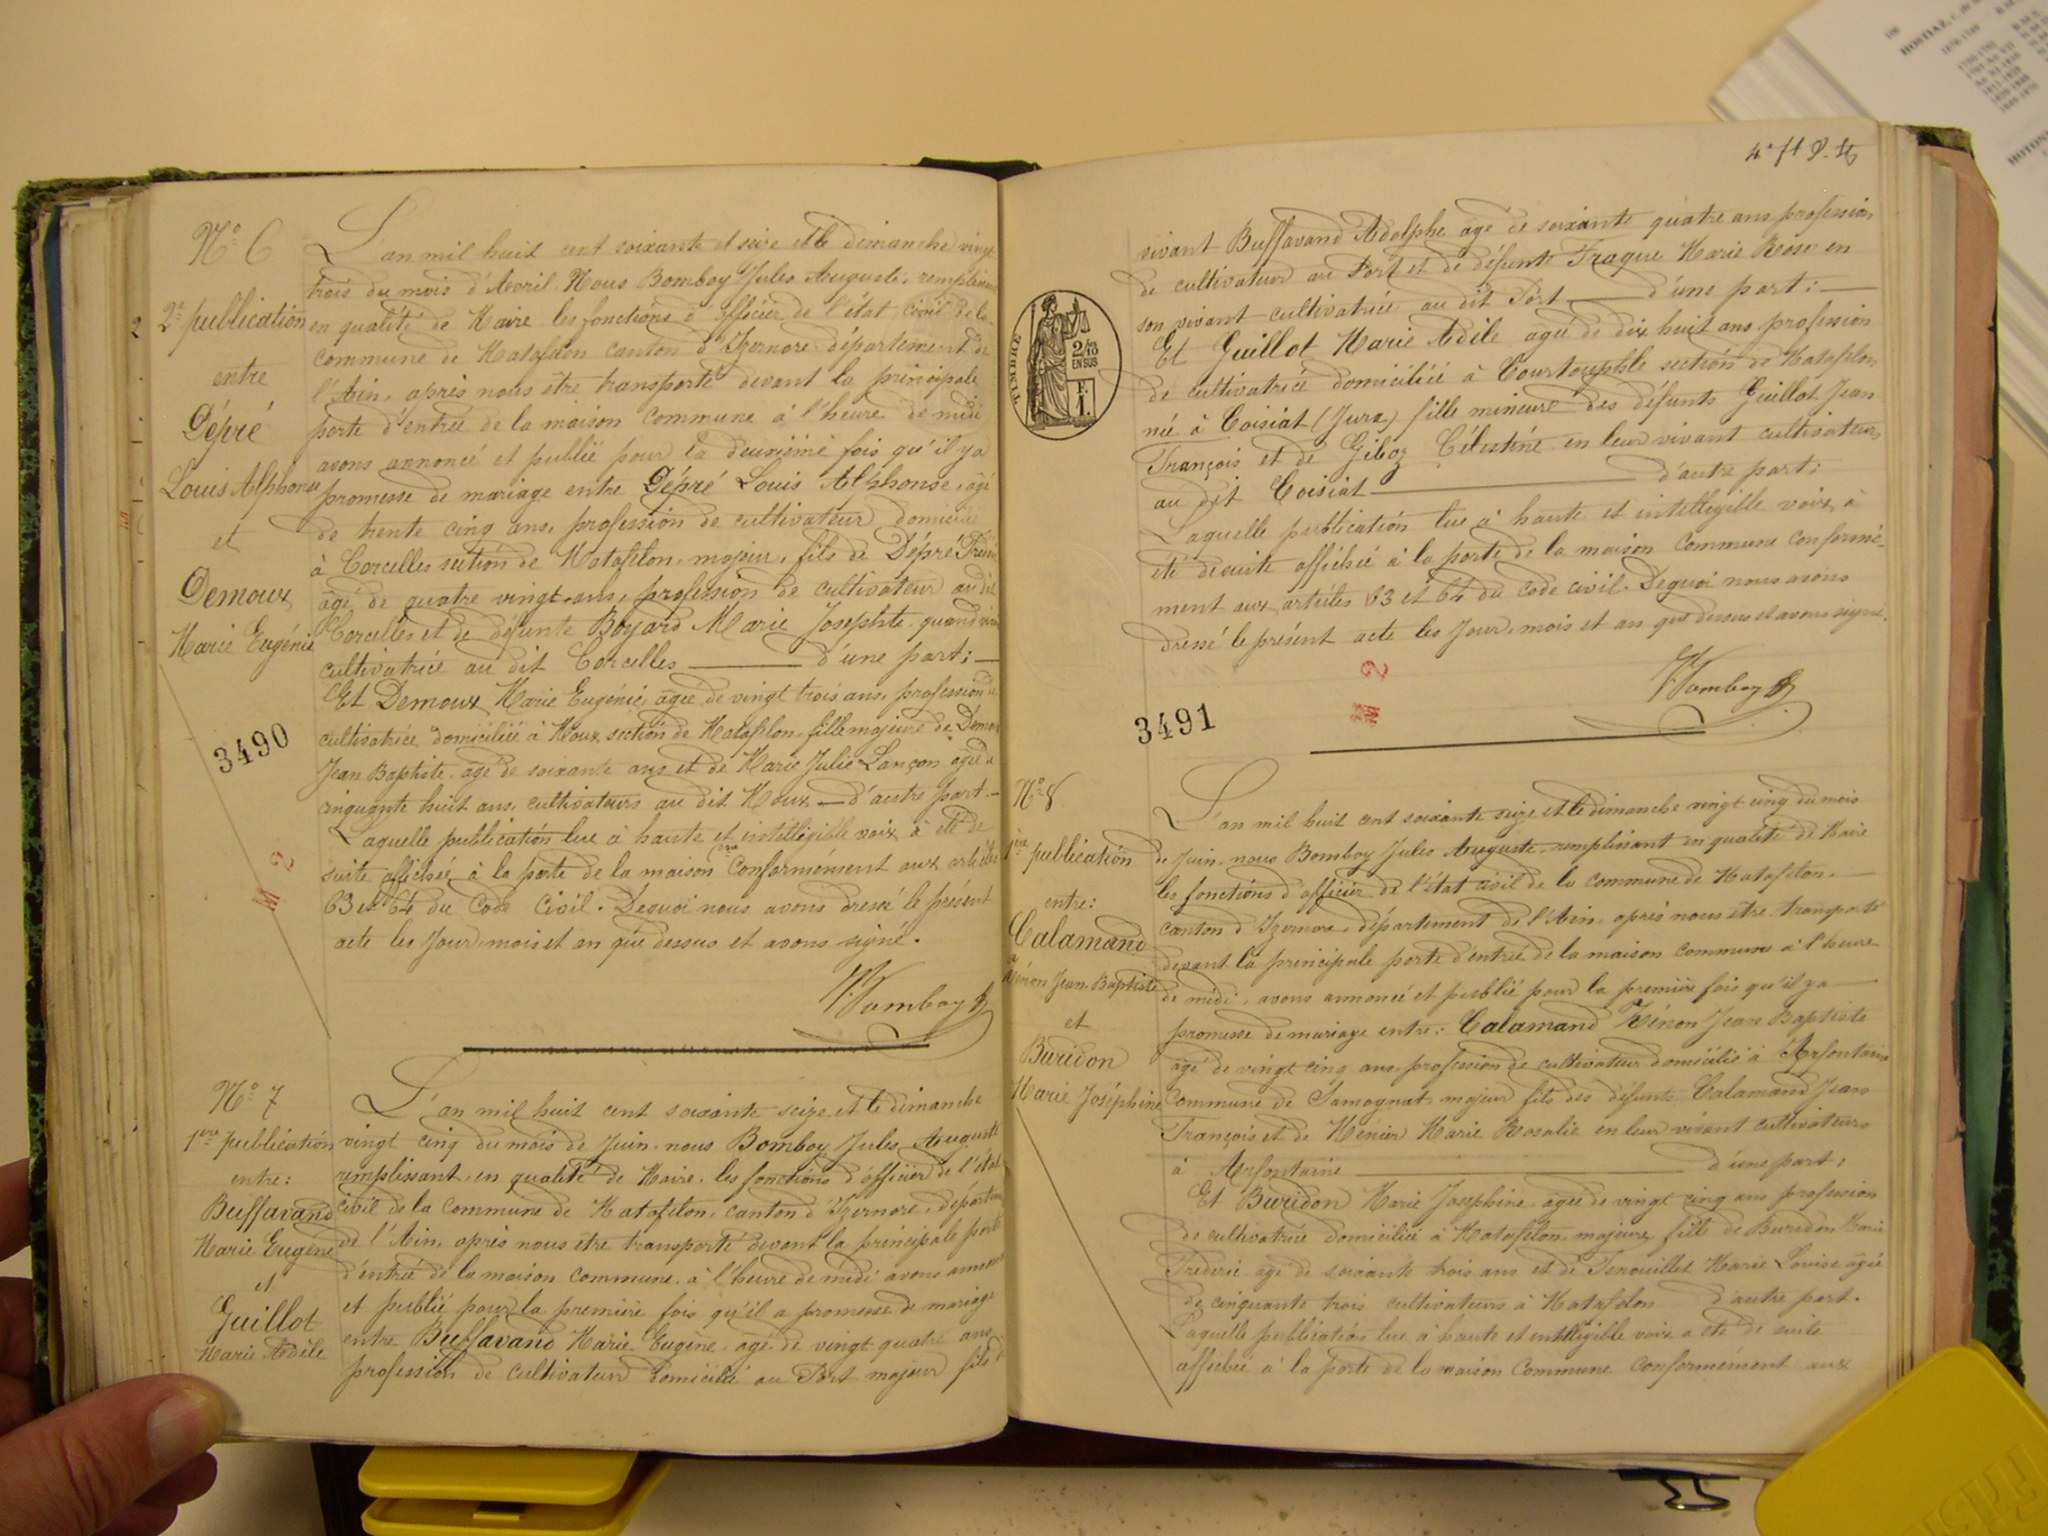 N° 6
2e publication
entre
Dépré
Louis Alphonse
et
Demoux
Marie Eugénie
3490
M 2
L'an mil huit cent soixante et seize et le dimanche vingt
trois du mois d'Avril. Nous Bomboy Jules Auguste, remplissant
en qualité de Maire les fonctions d'officier de l'état civil de la
commune de Matafelon canton d'Izernore département de
l'Ain, après nous être transporté devant la principale
porte d'entrée de la maison commune à l'heure de midi
avons annoncé et publié pour la deuxième fois qu'il y a
promesse de mariage entre Dépré Louis Alphonse, âgé
de trente cinq ans, profession de cultivateur domicilié
à Corcelles section de Matafelon, majeur, fils de Dépré
âgé de quatre vingt ans, profession de cultivateur au dit
Corcelles et de défunte Boyard Marie Josephte, quand
cultivatrice au dit Corcelles d'une part;
Et Demoux Marie Eugénie, agée de vingt trois ans, profession de
cultivatrice domiciliée à Moux section de Matafelon, fille majeure de Demoux
Jean Baptiste, agé de soixante ans et de Marie Julie Lançon agée de
cinquante huit ans, cultivateurs au dit Moux d'autre part.
Laquelle publication lue à haute et intelligible voix à été de
suite affichée à la porte de la maison cne conformément aux articles
63 et 64 du Code Civil. Dequoi nous avons dressé le présent
acte les Jour, mois et an que dessus et avons signé.
Bomboy
N° 7
1ere publication
entre:
Buffavand
Marie Eugène
et
Guillot
Marie Adèle
L'an mil huit cent soixante seize et le dimanche
vingt cinq du mois de Juin. nous Bomboy Jules Auguste
remplissant, en qualité de Maire, les fonctions d'officier de l'état
civil de la commune de Matafelon, canton d'Izernore, département
de l'Ain, après nous être transporté devant la principale porte
d'entrée de la maison commune, à l'heure de midi avons annoncé
et publié pour la première fois qu'il a promesse de mariage
entre Buffavand Marie Eugène, agé de vingt quatre ans
profession de cultivateur domicilié au Port majeur fils d
4e ft
TIMBRE
2/10
EN SUS
vivant Buffavand Adolphe agé de soixante quatre ans profession
de cultivateur au Port et de défunte Fraque Marie Rose en
son vivant cultivatrice au dit Port d'une part;
Et Guillot Marie Adèle agée de dix huit ans profession
de cultivatrice domiciliée à Courtouphle section de Matafelon,
née à Coisiat (Jura) fille mineure des défunts Guillot Jean
François et de Giboz Célestine en leur vivant cultivateurs
au dit Coisiat d'autre part;
Laquelle publication lue à haute et intelligible voix, à
été de suite affichée à la porte de la maison commune conformé-
ment aux articles 63 et 64 du code civil. Dequoi nous avons
dressé le présent acte les Jour, mois et an que dessus et avons signé.
M 2
Bomboy
3491
N° 8
1ere publication
entre:
Calamand
Zénon Jean Baptiste
et
Buridon
Marie Joséphine
L'an mil huit cent soixante seize et le dimanche vingt cinq du mois
de Juin, nous Bomboy Jules Auguste, remplissant en qualité de Maire
les fonctions d'officier de l'état civil de la commune de Matafelon,
canton d'Izernore, département de l'Ain, après nous être transporté
devant la principale porte d'entrée de la maison commune à l'heure
de midi, avons annoncé et publié pour la première fois qu'il y a
promesse de mariage entre: Calamand Zénon Jean Baptiste
âgé de vingt cinq ans profession de cultivateur domicilié à Arfontaine
Commune de Samognat majeur fils des défunts Calamand Jean
François et de Ménier Marie Rosalie en leur vivant cultivateurs
à Arfontaine d'une part;
Et Buridon Marie Josephine, agée de vingt cinq ans profession
de cultivatrice domiciliée à Matafelon, majeure fille de Buridon Marie
Fréderic agé de soixante trois ans et de Tenouillet Marie Louise agée
de cinquante trois cultivateurs à Matafelon d'autre part.
Laquelle publication lue à haute et intelligible voix a été de suite
affichée à la porte de la maison commune conformément aux